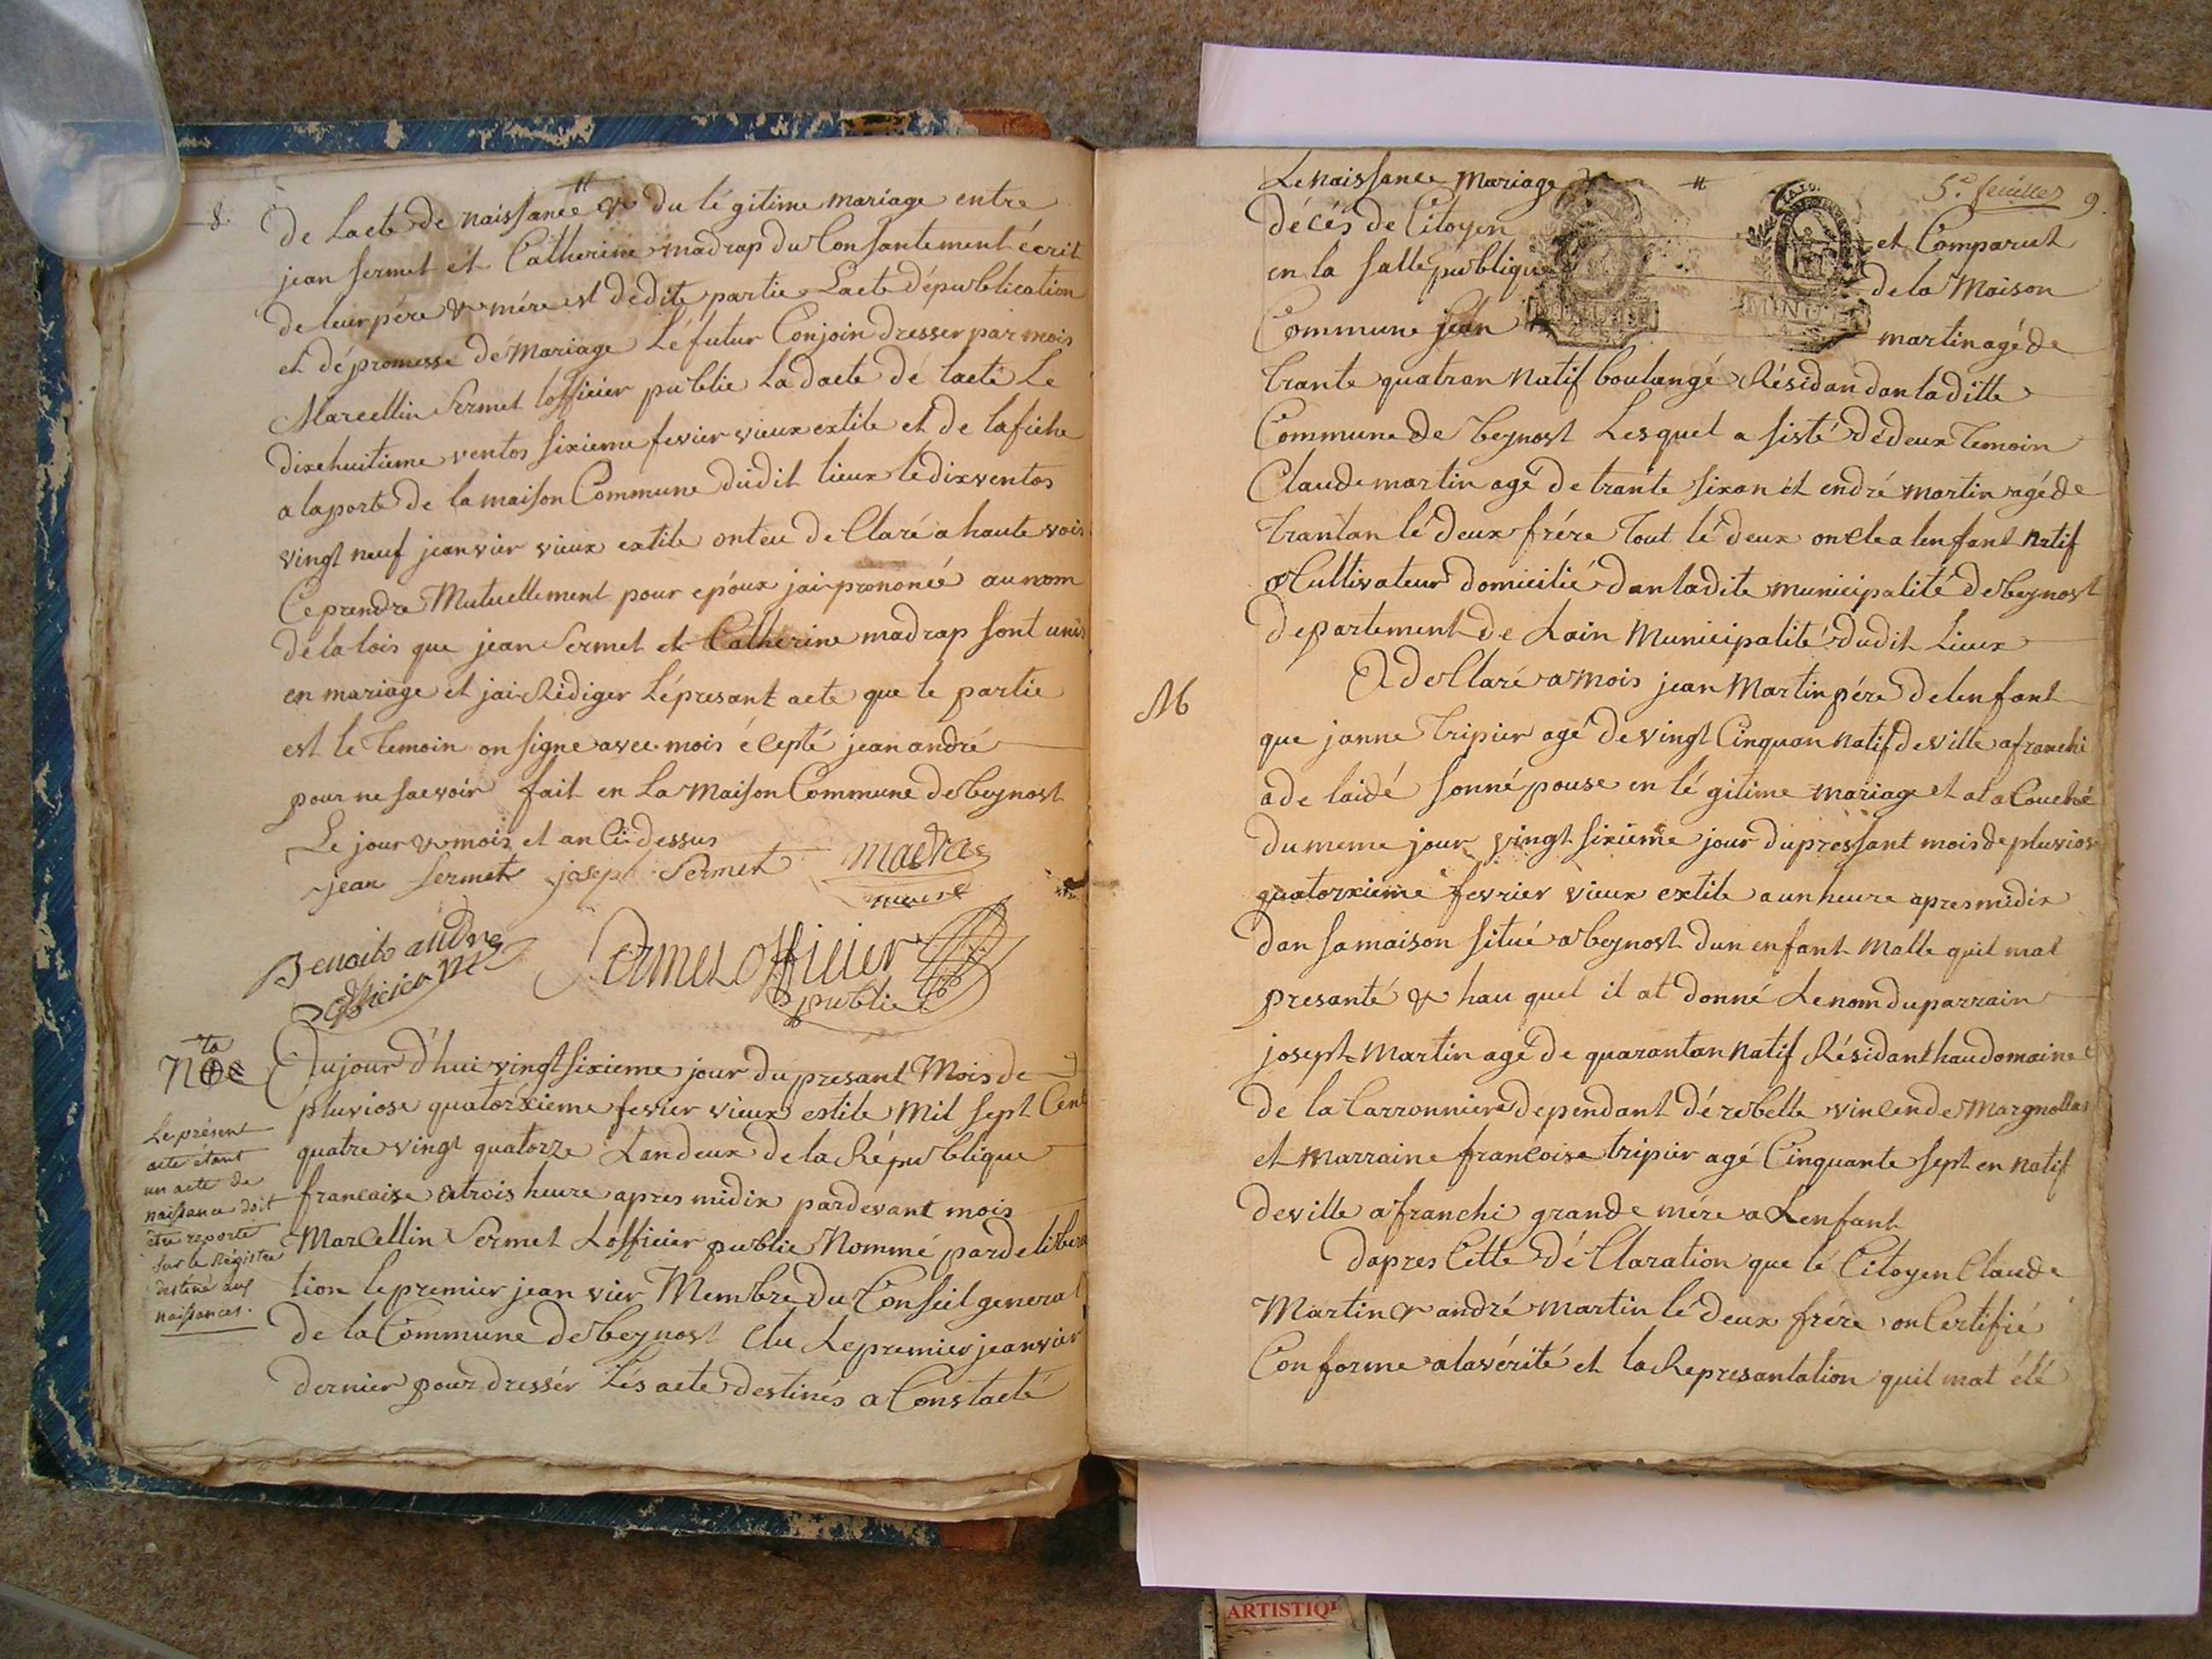 8.
De Lacte de naissance & du légitime mariage entre
jean Sermet et Catherine madrap du Consantement écrit
de leur pére & mére est dédite partie Lacte dépublication
et dépromesse dé Mariage Léfutur Conjoin dresser par mois
Marcellin Sermet lofficier public La dacte dé lacte Le
dixehuitieme ventos sixieme fevier vieux extile et de lafiche
a laporte de la maison Commune dudit lieux lédixventos
vingt neuf jeanvier vieux extile onteu de Claré a haute vois
Ceprendre Mutuellement pour epoux jai prononcé aunom
délalois que jean Sermet et Catherine madrap sont unis
en mariage et jai Rédiger Lépresant acte que le partie
est le temoin on signe avec mois écepté jean andré
pour ne saevoir fait en La Maison Commune de beynost
Le jour & mois et an Ci dessus
jean Sermet josep Sermet
maire
Benoits andre
officier
Sermet officier
public
Nota
Le présent
acte étant
un acte de
naissance doit
être reporté
sur le Régistre
destiné aux
naissances.
Aujourd'hui vingt sixieme jour du presant Mois de
pluviose quatorxieme fevier vieux extile Mil sept Cent
quatre vingt quatorze Landeux de la République
francaise atrois heure apres midix pardevant mois
Marcellin Sermet Lofficier public Nommé pardelibera
tion lepremier jeanvier Membre du Conseil general
de la Commune de beynost Elu Lepremier jeanvier
dernier pour dressér Lés acte destinés a Constacté
5e. feuilles 9.
Le naissance Mariage &
décés de Citoyen et Comparut
en la salle publique de la Maison
Commune jean martin agé de
trante quatran Natif boulangé Résidan dan laditte
Commune de beynost Lesquel a sisté dédeux temoin
Claude martin agé de trante sixan et endré martin agé de
trantan lé deux frére tout lé deux oncle a lenfant natif
& Cultivateur domicilié dan ladite municipalité de beynost
departement de Lain Municipalité dudit Lieux
M
A de Claré a mois jean Martin pére de lenfant
que janne tripier agé de vingt Cinquan natif de ville afranchi
a de laidé sonnépouse en légitime mariage et at a Couché
du meme jour vingt sixieme jour du pressant mois de pluvios
quatorxieme fevrier vieux extile a un heure apres midix
dan sa maison situé a beynost dun enfant Malle quil mat
presanté & hau quel il at donné Le nom du parrain
joseph Martin agé de quarantan natif Résidant hau domaine
de la Carronniere dependant dé rebelle vincende Margnollas
et Marraine francoise tripier agé Cinquante sept en natif
deville afranchi grande mére a Lenfant
dapres Cette déClaration que lé Citoyen Claude
Martin & andré martin lé deux frére on Certifié
Conforme a lavérité et la Represantation quil mat été
MINUTE
ARTISTIQ